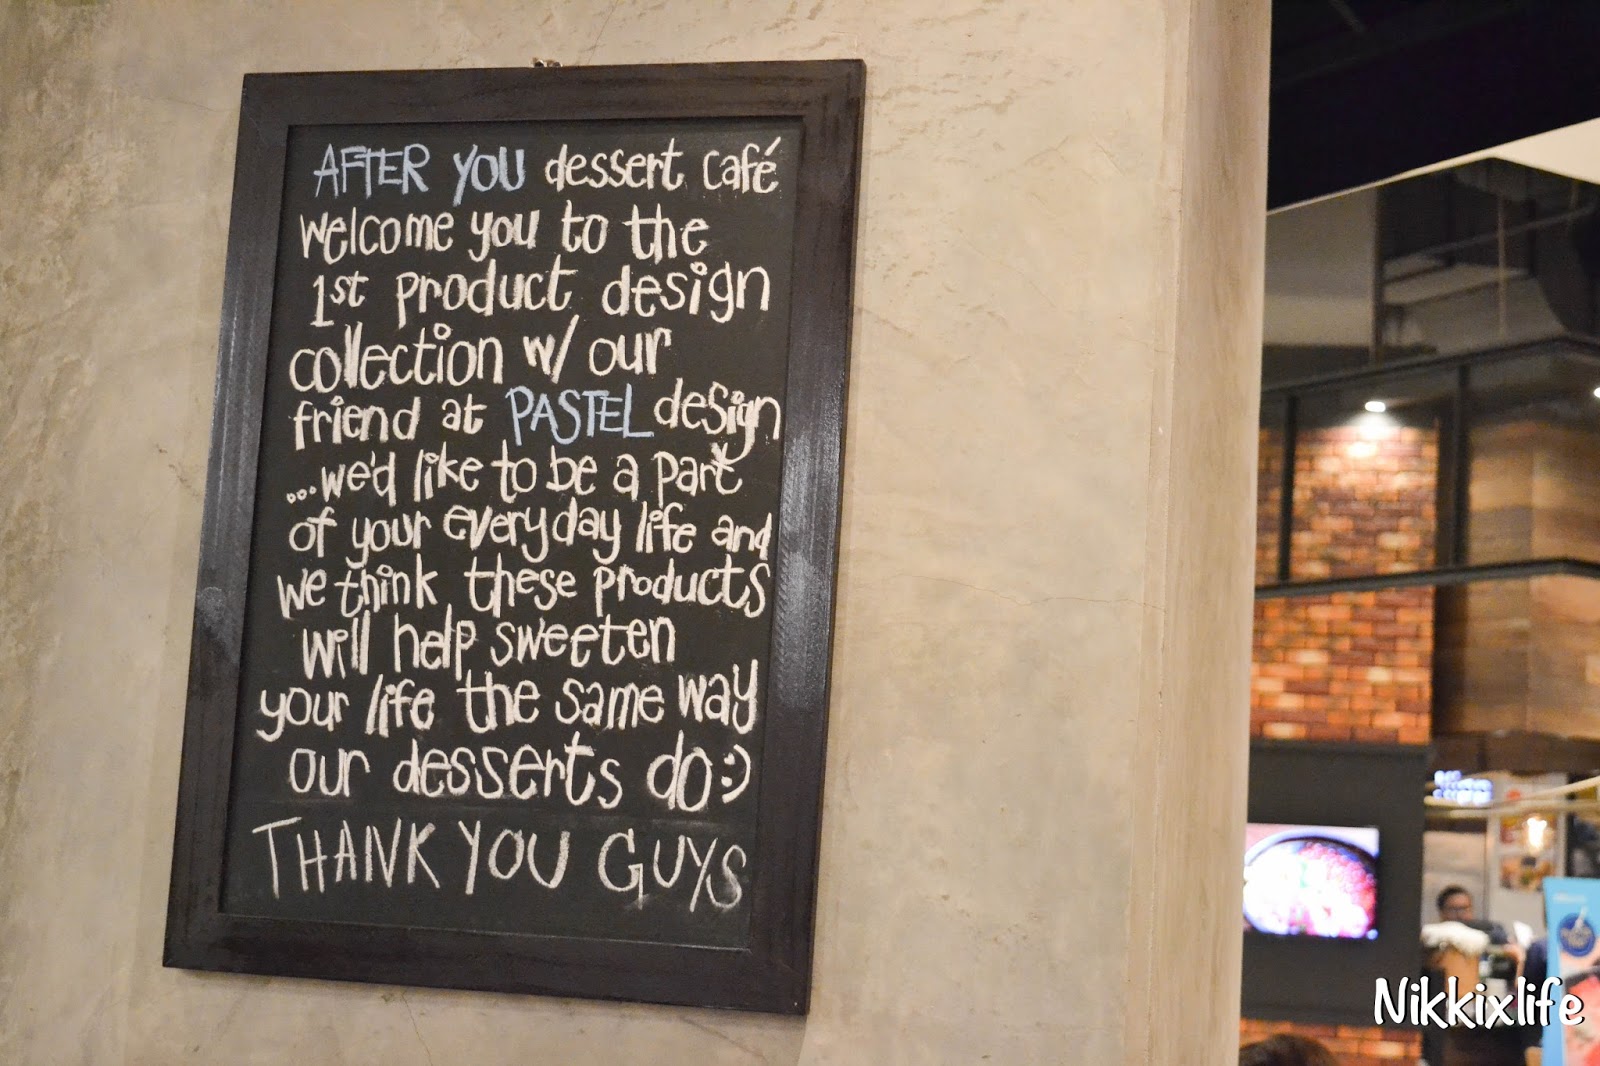 AFTER YOU dessert café
welcome you to the
1st product design
collection w/ our
friend at PASTEL design
...we'd like to be a part
of your everyday life and
we think these products
will help sweeten
your life the same way
our desserts do:)
THANK YOU GUYS
Nikkixlife